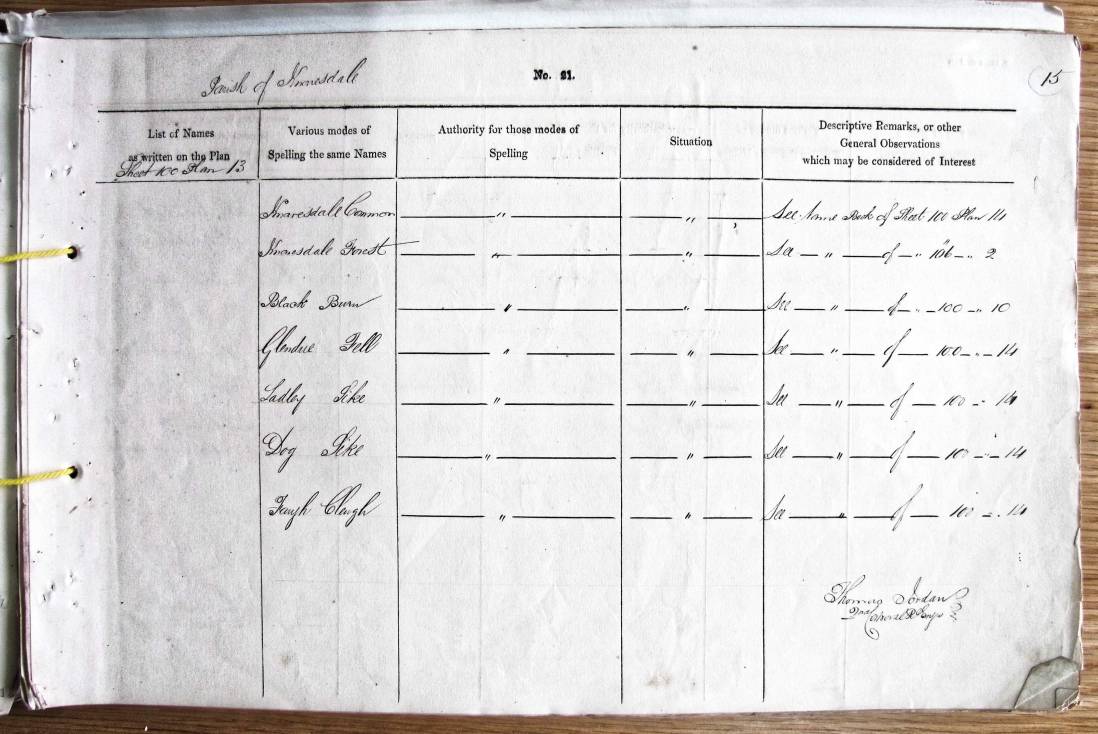 Parish of Knaresdale
No. 21.
15
List of Names
as written on the Plan
Sheet 100 Plan 13
Various modes of
Spelling the same Names
Authority for those modes of
Spelling
Situation
Descriptive Remarks, or other
General Observations
which may be considered of Interest
Knaresdale Common — " — — " — See Name Book of Sheet 100 Plan 14
Knaresdale Forest — " — — " — See — " — of — " 106 — " 2
Black Burn — " — — " — See — " — of — " — 100 — " 10
Glendue Fell — " — — " — See — " — of — 100 — " — 14
Ladley Sike — " — — " — See — " — of — 100 — " 14
Dog Sike — " — — " — See — " — of — 100 — " — 14
Faugh Cleugh — " — — " — See — " — of — 100 — " 14
Thomas Jordan
2nd Corporal R Sap